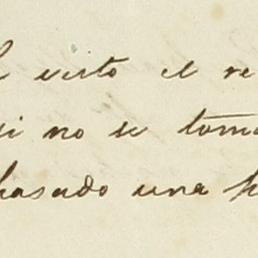 visto el re
si no se toma
pasado una